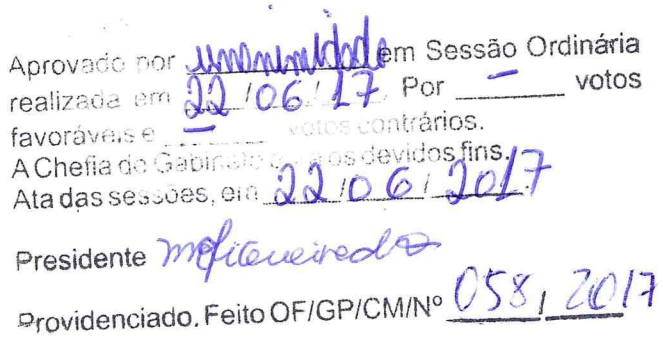 Aprovado por unanimidade em Sessão Ordinária
realizada em 22/06/17. Por - votos
favoráveis e - votos contrários.
A Chefia do Gabinete para os devidos fins.
Ata das sessões, em 22/06/2017.
Presidente
Providenciado. Feito OF/GP/CM/Nº 058, 2017